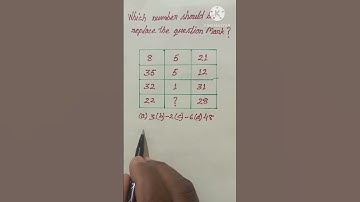 Which number should be
replace the question Mark?
8 5 21
35 5 12
32 1 31
22 ? 28
(a) 3 (b) -2 (c) -6 (d) 48